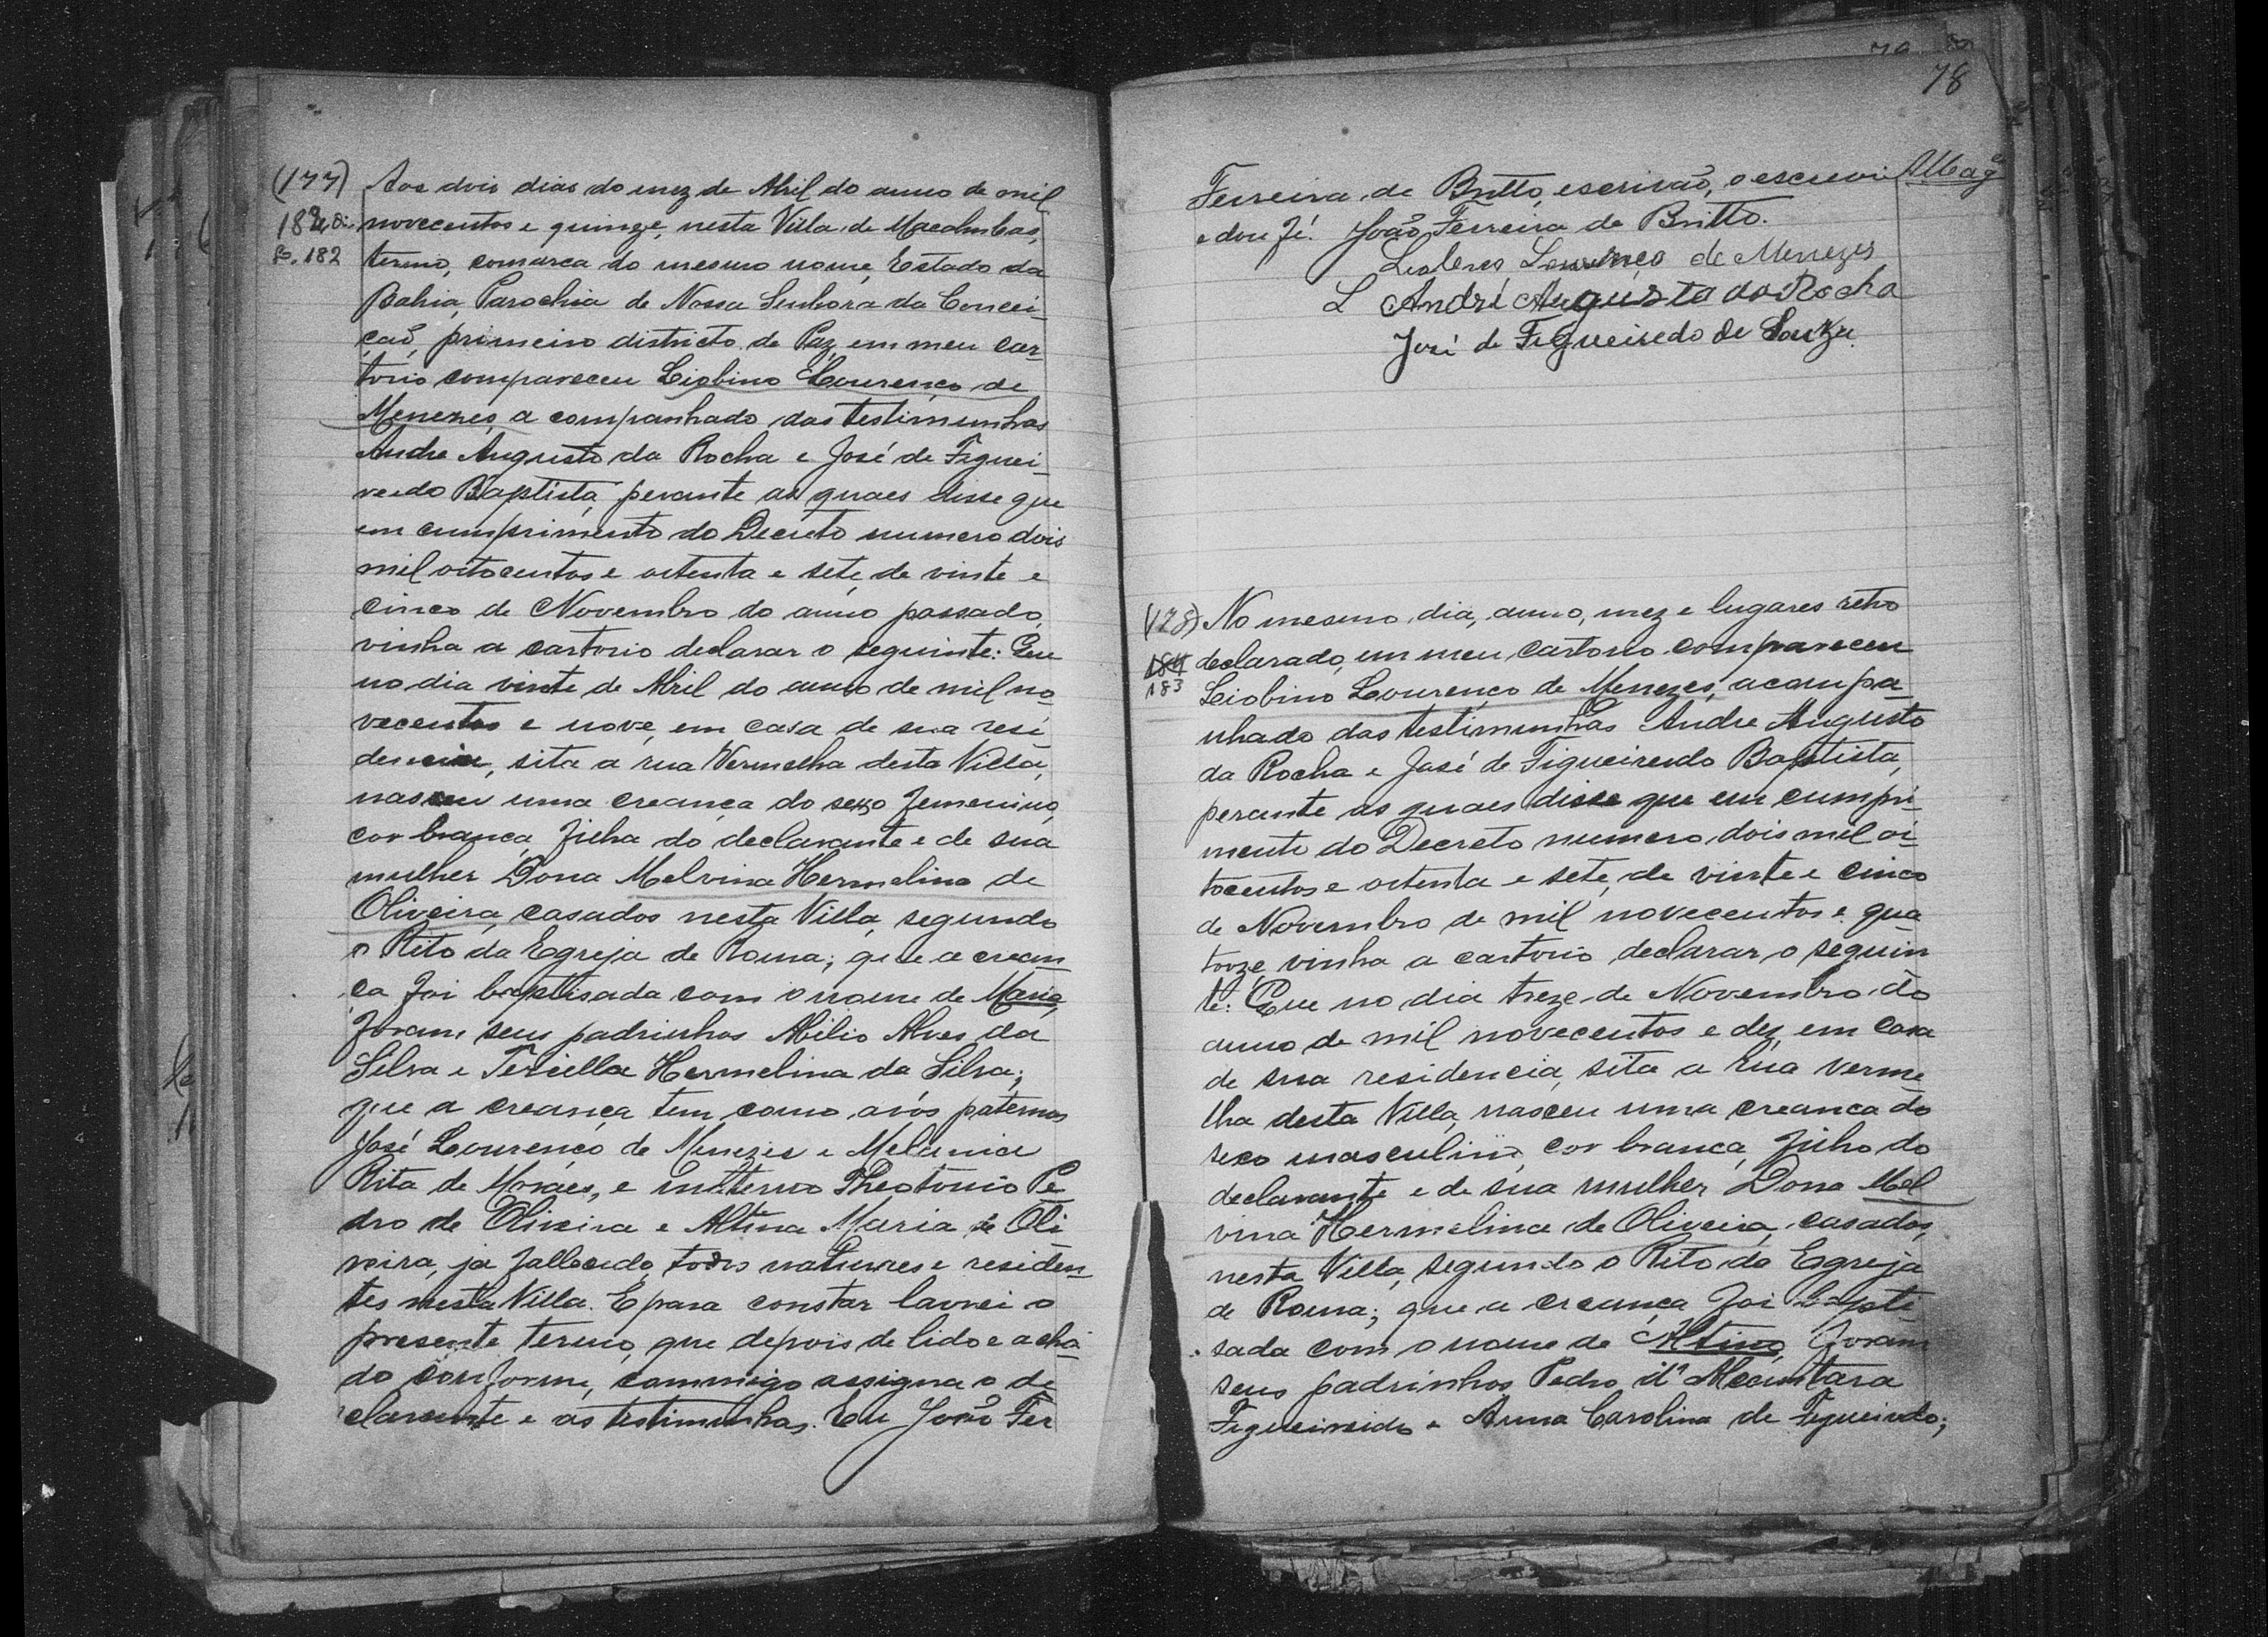 (177) Aos dois dias do mez de Abril do anno de mil
novecentos e quinze, nesta Villa de Macahubas,
182 termo, comarca do mesmo nome, Estado da
Bahia, Parochia de Nossa Senhora da Concei-
ção, primeiro districto de Paz, em meu car-
torio compareceu Liobino Lourenço de
Menezes, a companhado das testimunhas
Andre Augusto da Rocha e José de Figuei-
redo Baptista, perante as quaes disse que
em cumprimento do Decreto numero dois
mil oitocentos e oitenta e sete, de vinte e
cinco de Novembro do anno passado,
vinha a cartorio declarar o seguinte: Que
no dia vinte de Abril do anno de mil no
vecentos e nove, em casa de sua resi
dencia, sita a rua Vermelha desta Villa,
nasceu uma creança do sexo femenino,
cor branca, filha do declarante e de sua
mulher Dona Melvina Hermelina de
Oliveira, casados nesta Villa, segundo
o Rito da Egreja de Roma; que a crean
ça foi baptisada com o nome de Maria,
foram seus padrinhos Abilio Alves da
Silva e Hermelina da Silva;
que a creança tem como avós paternos
José Lourenço de Menezes e Melania
Rita de Moraes, e materno Theotonio Pe
dro de Oliveira e Altina Maria de Oli
veira, ja fallecido, todos naturaes e residen
tes nesta Villa. E para constar lavrei o
presente termo, que depois de lido e acha
do conforme, commigo assigna o de
clarante e as testimunhas. Eu João Fer
78
Ferreira de Britto, escrivão, o escrevi
e dou fé. João Ferreira de Britto.
Lourenço de Menezes
André Augusto da Rocha
José de Figueiredo de Souza
(178) No mesmo dia, anno, mez e lugares retro
184 declarado, em meu cartorio compareceu
183 Liobino Lourenço de Menezes, acompa
nhado das testimunhas Andre Augusto
da Rocha e José de Figueiredo Baptista,
perante as quaes disse que em cumpri-
mento do Decreto numero dois mil oi-
tocentos e oitenta e sete, de vinte e cinco
de Novembro de mil novecentos e qua
torze vinha a cartorio declarar o seguin
te: Que no dia treze de Novembro do
anno de mil novecentos e dez, em casa
de sua residencia, sita a rua Verme
lha desta Villa, nasceu uma creanca do
sexo masculino, cor branca, filho do
declarante e de sua mulher Dona Mel
vina Hermelina de Oliveira, casados,
nesta Villa, segundo o Rito da Egreja
de Roma; que a creança foi bapti
sada com o nome de Altino, foram
seus padrinhos Pedro d'Alcantara
Figueiredo e Anna Carolina de Figueiredo;